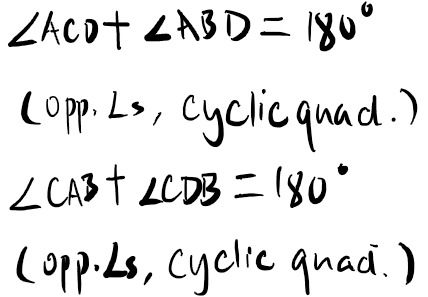 ∠ACD + ∠ABD = 180°
(opp. ∠s, cyclic quad.)
∠CAB + ∠CDB = 180°
(opp. ∠s, cyclic quad.)